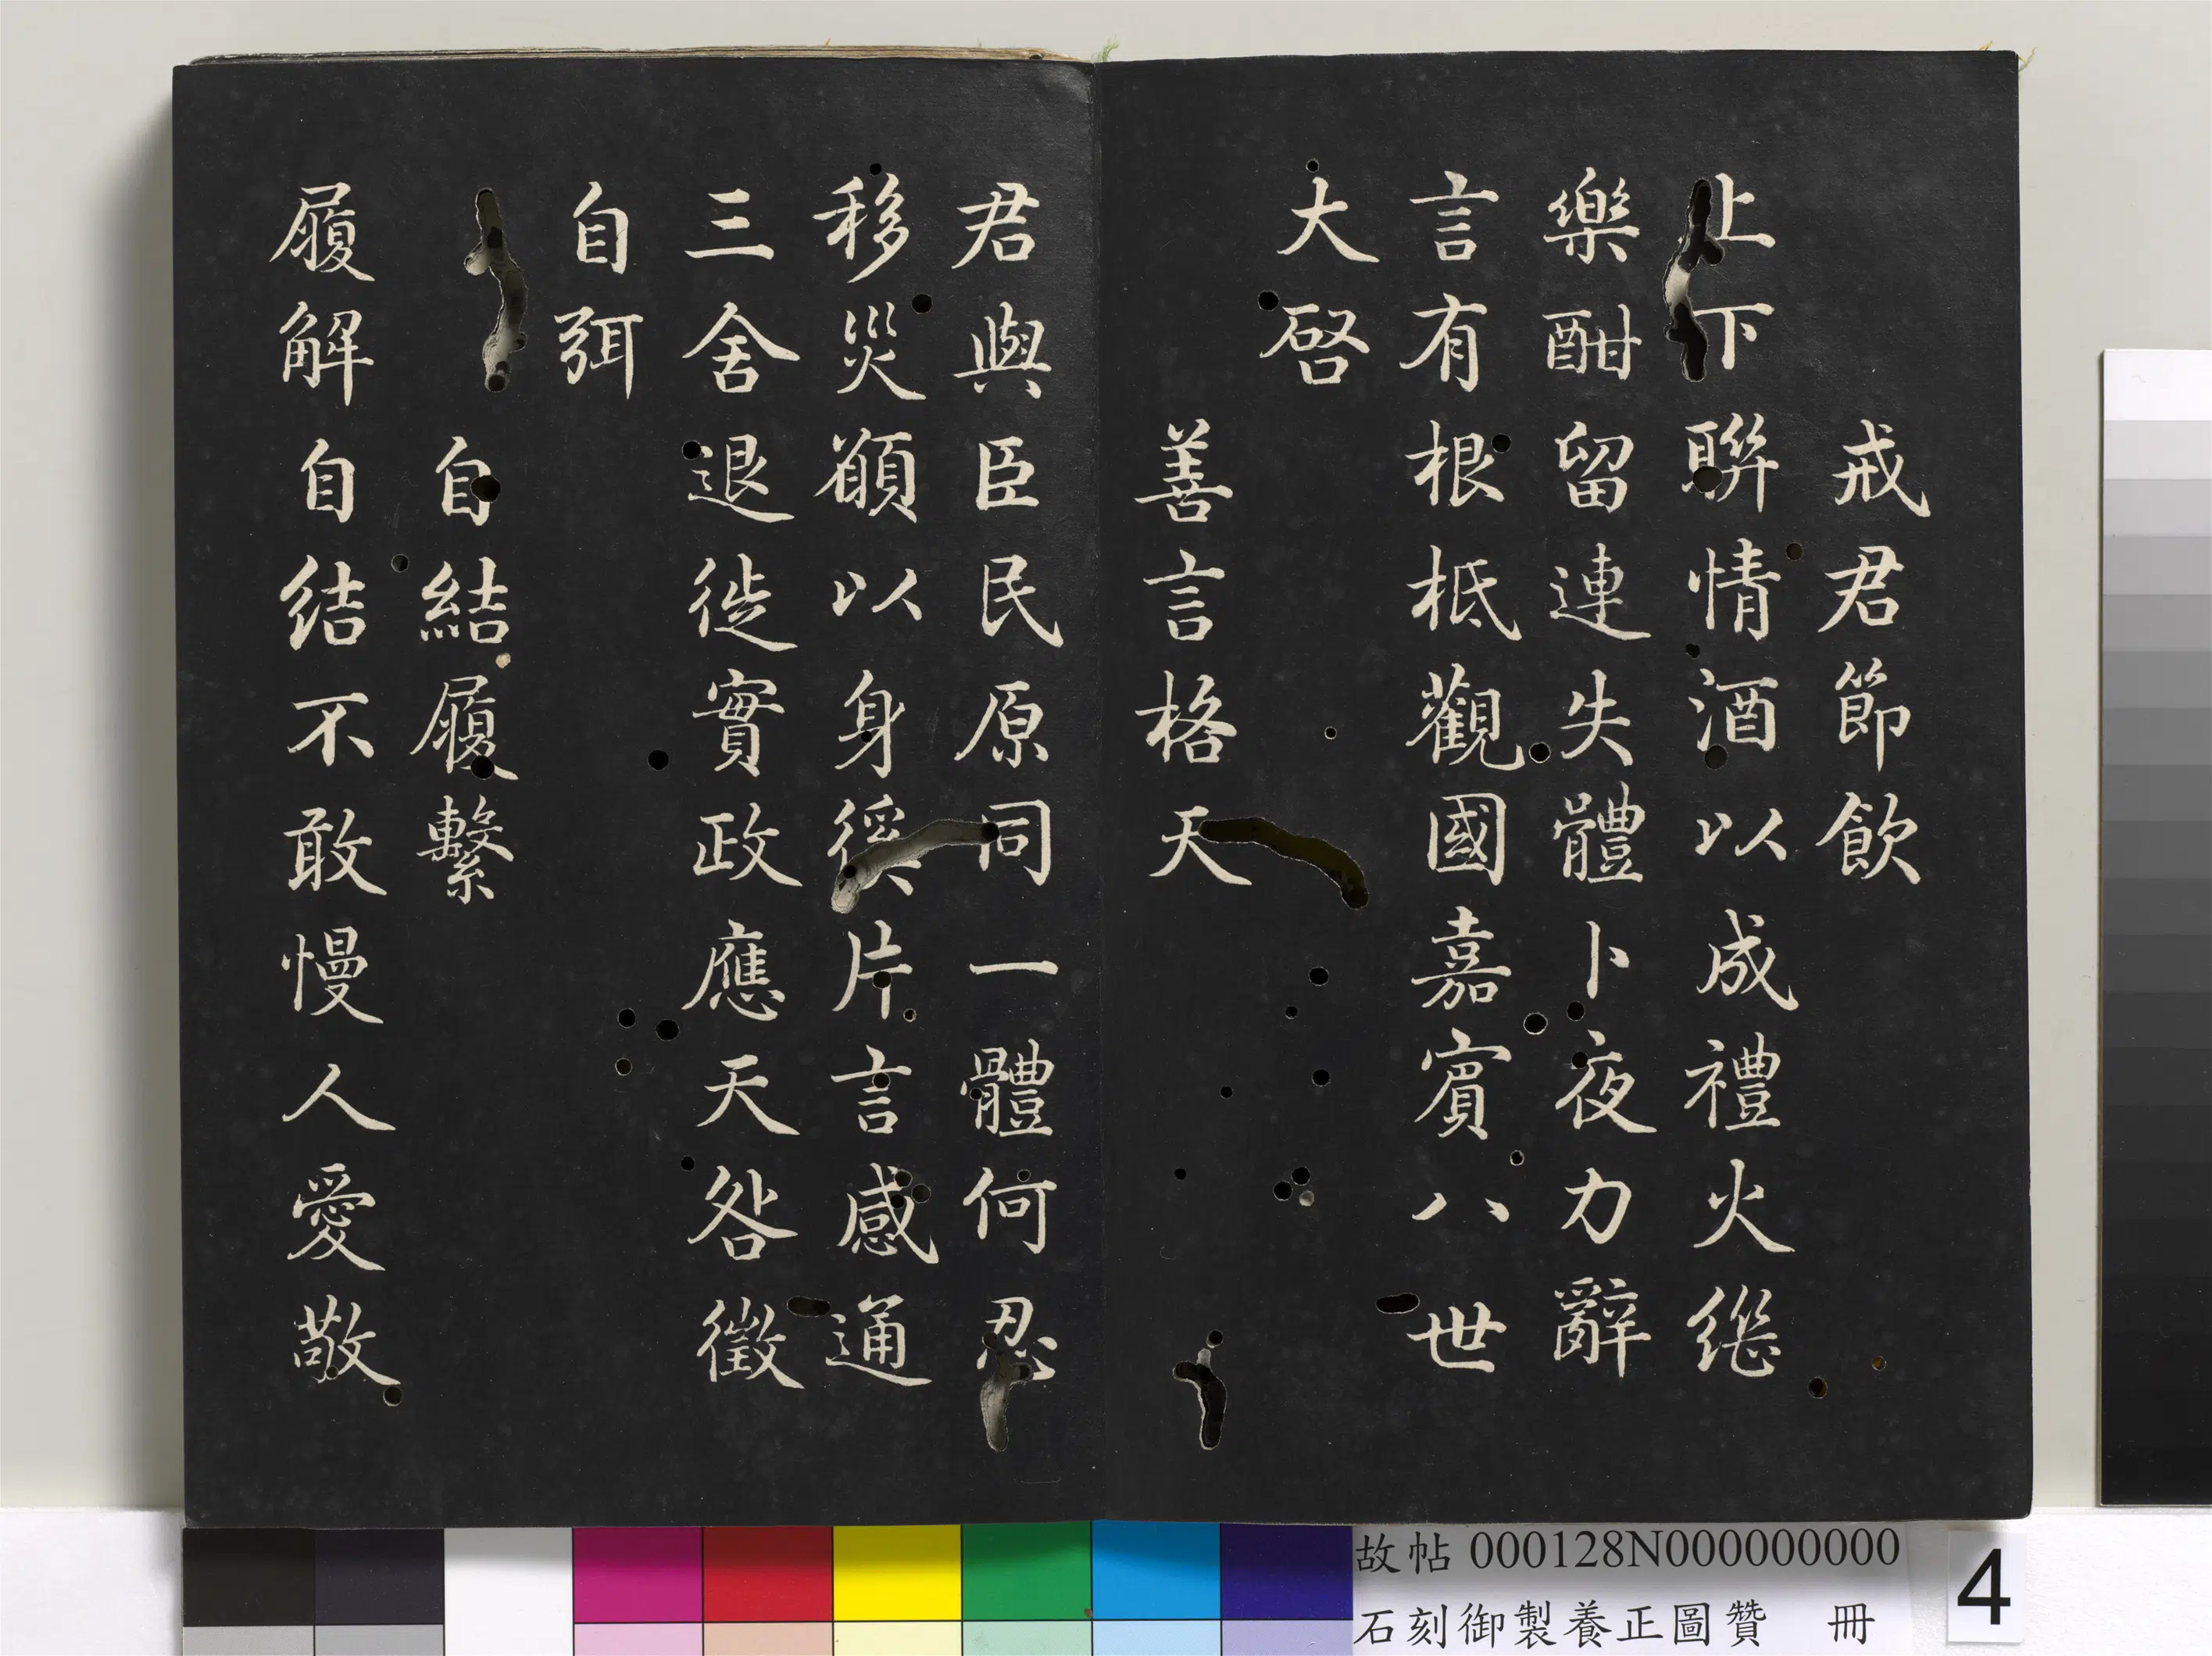 戒君節飲
上下聯情酒以成禮火継
樂酣留連失體卜夜力辭
言有根柢觀國嘉賓八世
大啓
善言格天
君與臣民原同一體何忍
移災願以身徯片言感通
三舍退徙實政應天咎徵
自弭
自結履繫
履解自结不敢慢人愛敬
故帖 000128N000000000
石刻御製養正圖贊 冊
4